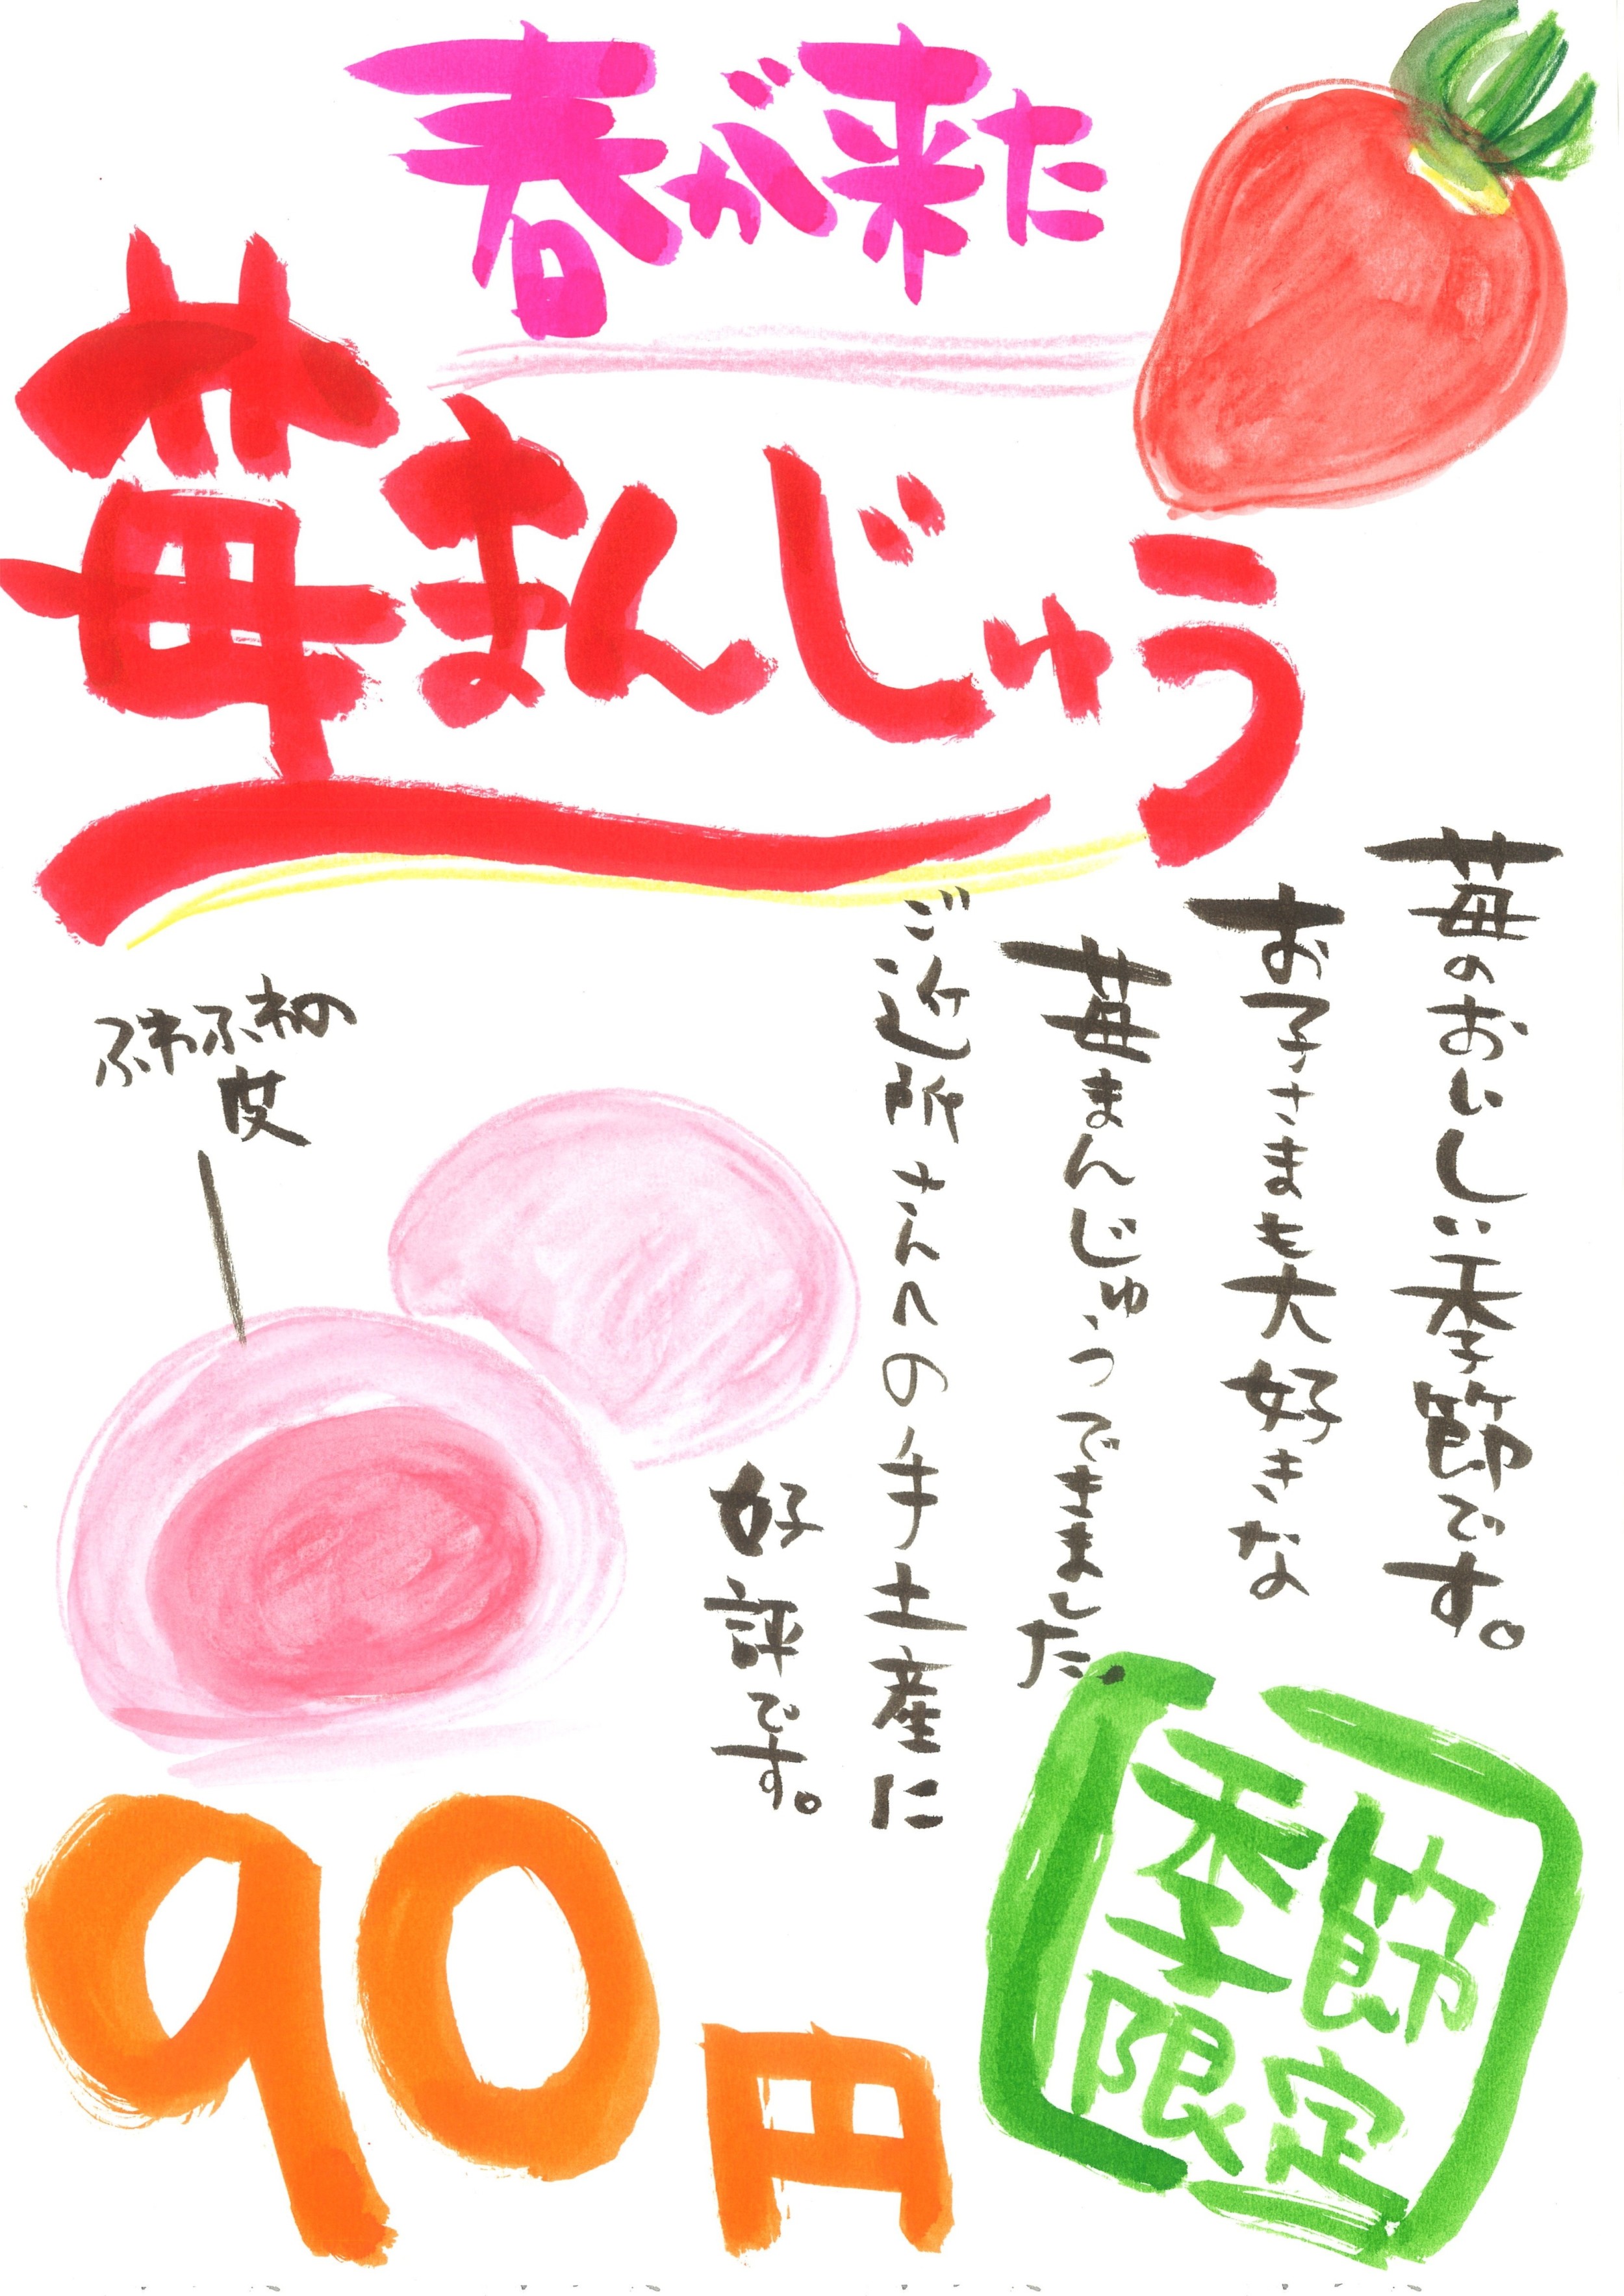 春が来た
苺まんじゅう
苺のおいしい季節です。
お子さまも大好きな
苺まんじゅうできました。
ご近所さんへの手土産に
好評です。
ふわふわの
皮
90円
季節
限定